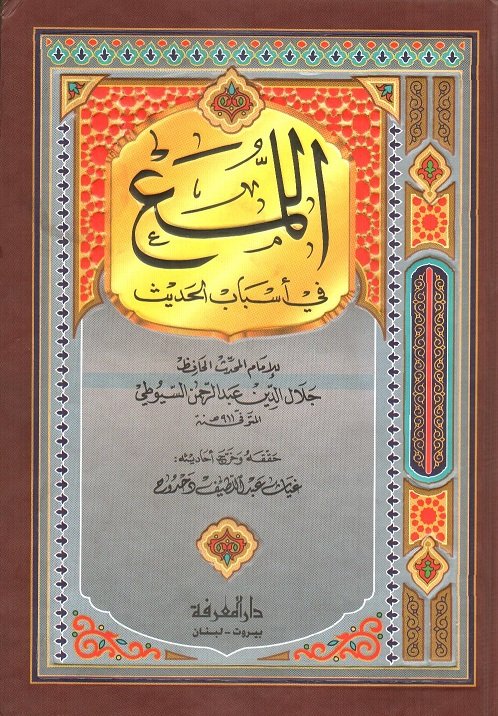 اللُّمَعْ
في أسباب الحديث
للإمام المحدث الحافظ
جلال الدين عبد الرحمن السيوطي
المتوفى ٩١١ سنة
حققه وخرج أحاديثه:
غياث عبد اللطيف دحدوح
دار المعرفة
بيروت - لبنان